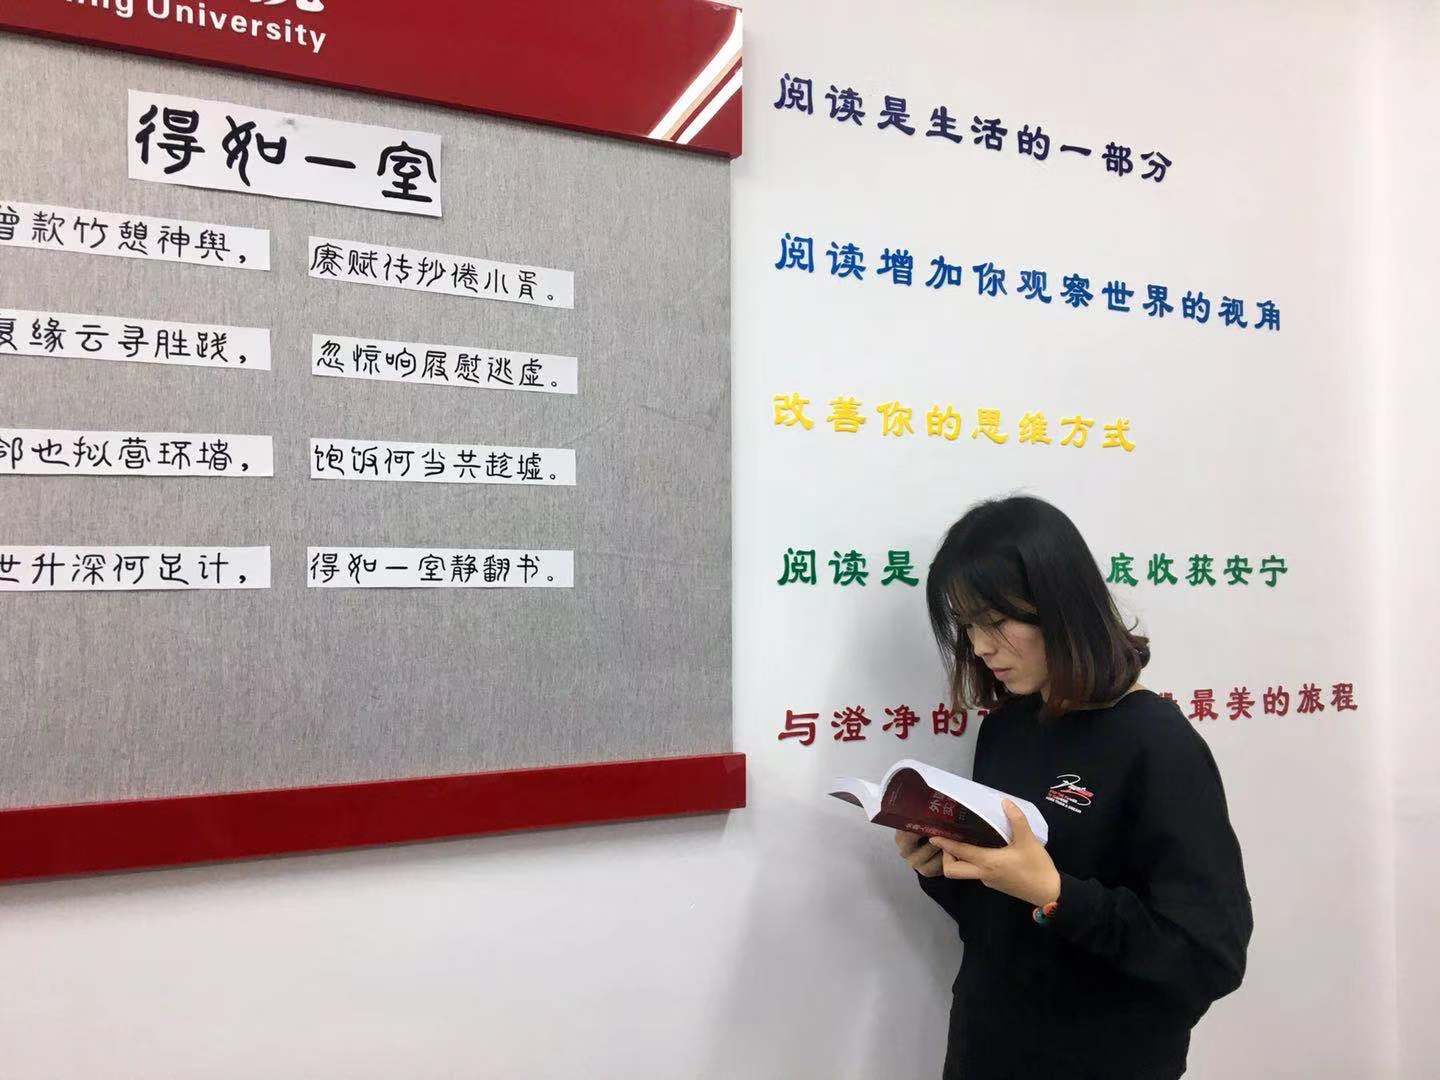 University
得如一室
款竹憩神舆，
赓赋传抄倦小胥。
缘云寻胜践，
忽惊响屐慰逃虚。
邻也拟营环堵，
饱饭何当共趁墟。
世升深何足计，
得如一室静翻书。
阅读是生活的一部分
阅读增加你观察世界的视角
改善你的思维方式
阅读是 底收获安宁
与澄净的 最美的旅程